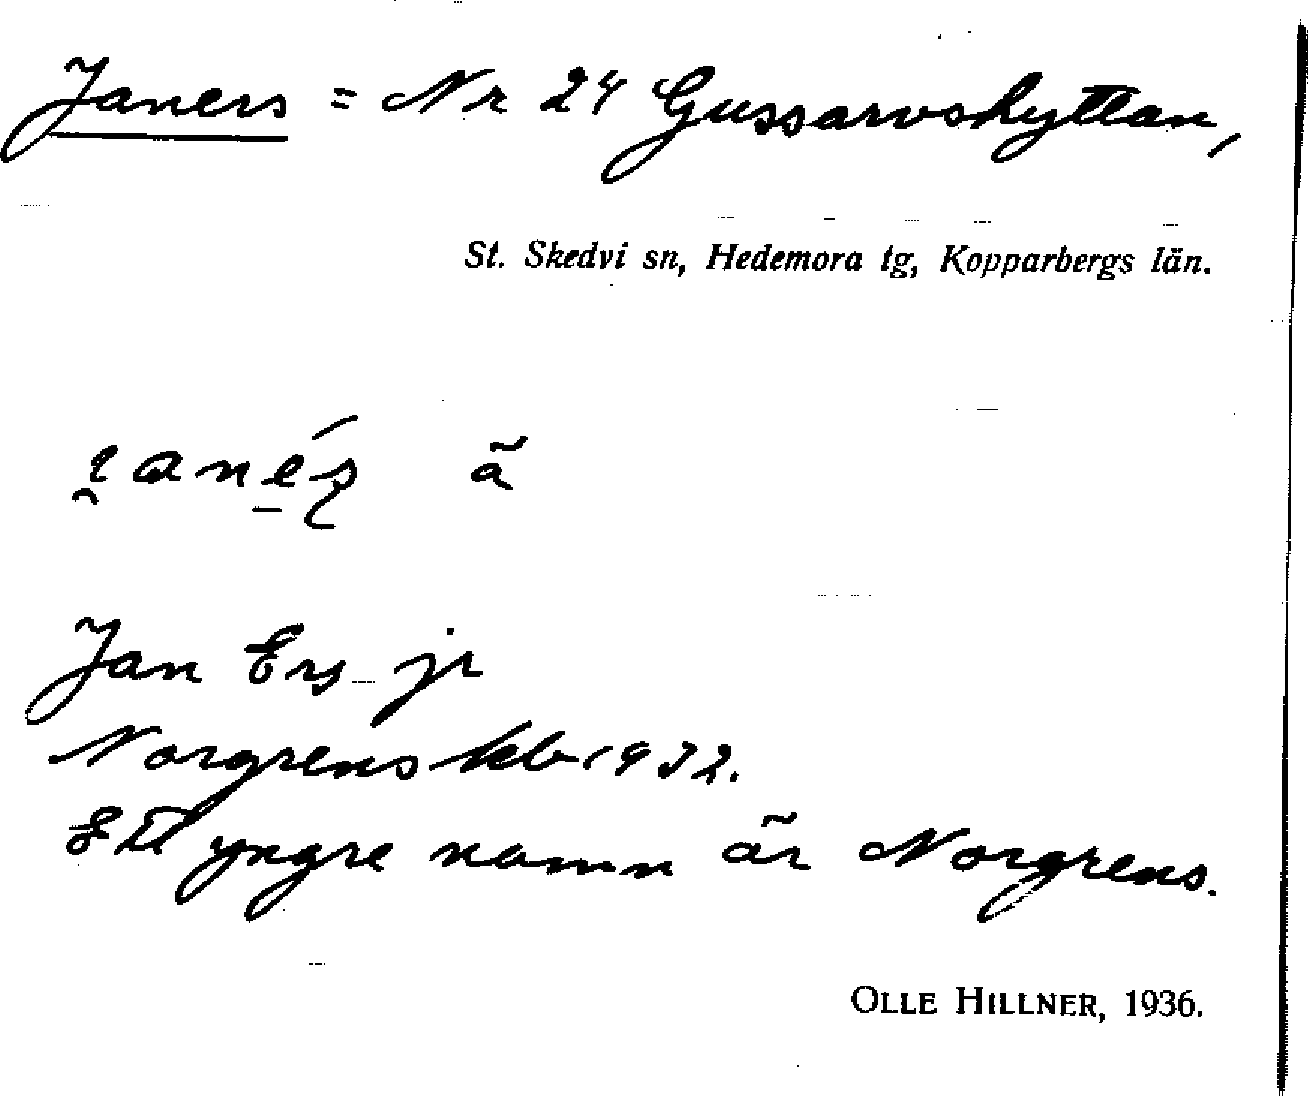 Janers = Nr 24 Gussarvshyttan,
St. Skedvi sn, Hedemora tg, Kopparbergs län.
ä
Jan Ers jr
Norgrens kb 1932.
Ett yngre namn är Norgrens.
OLLE HILLNER, 1936.